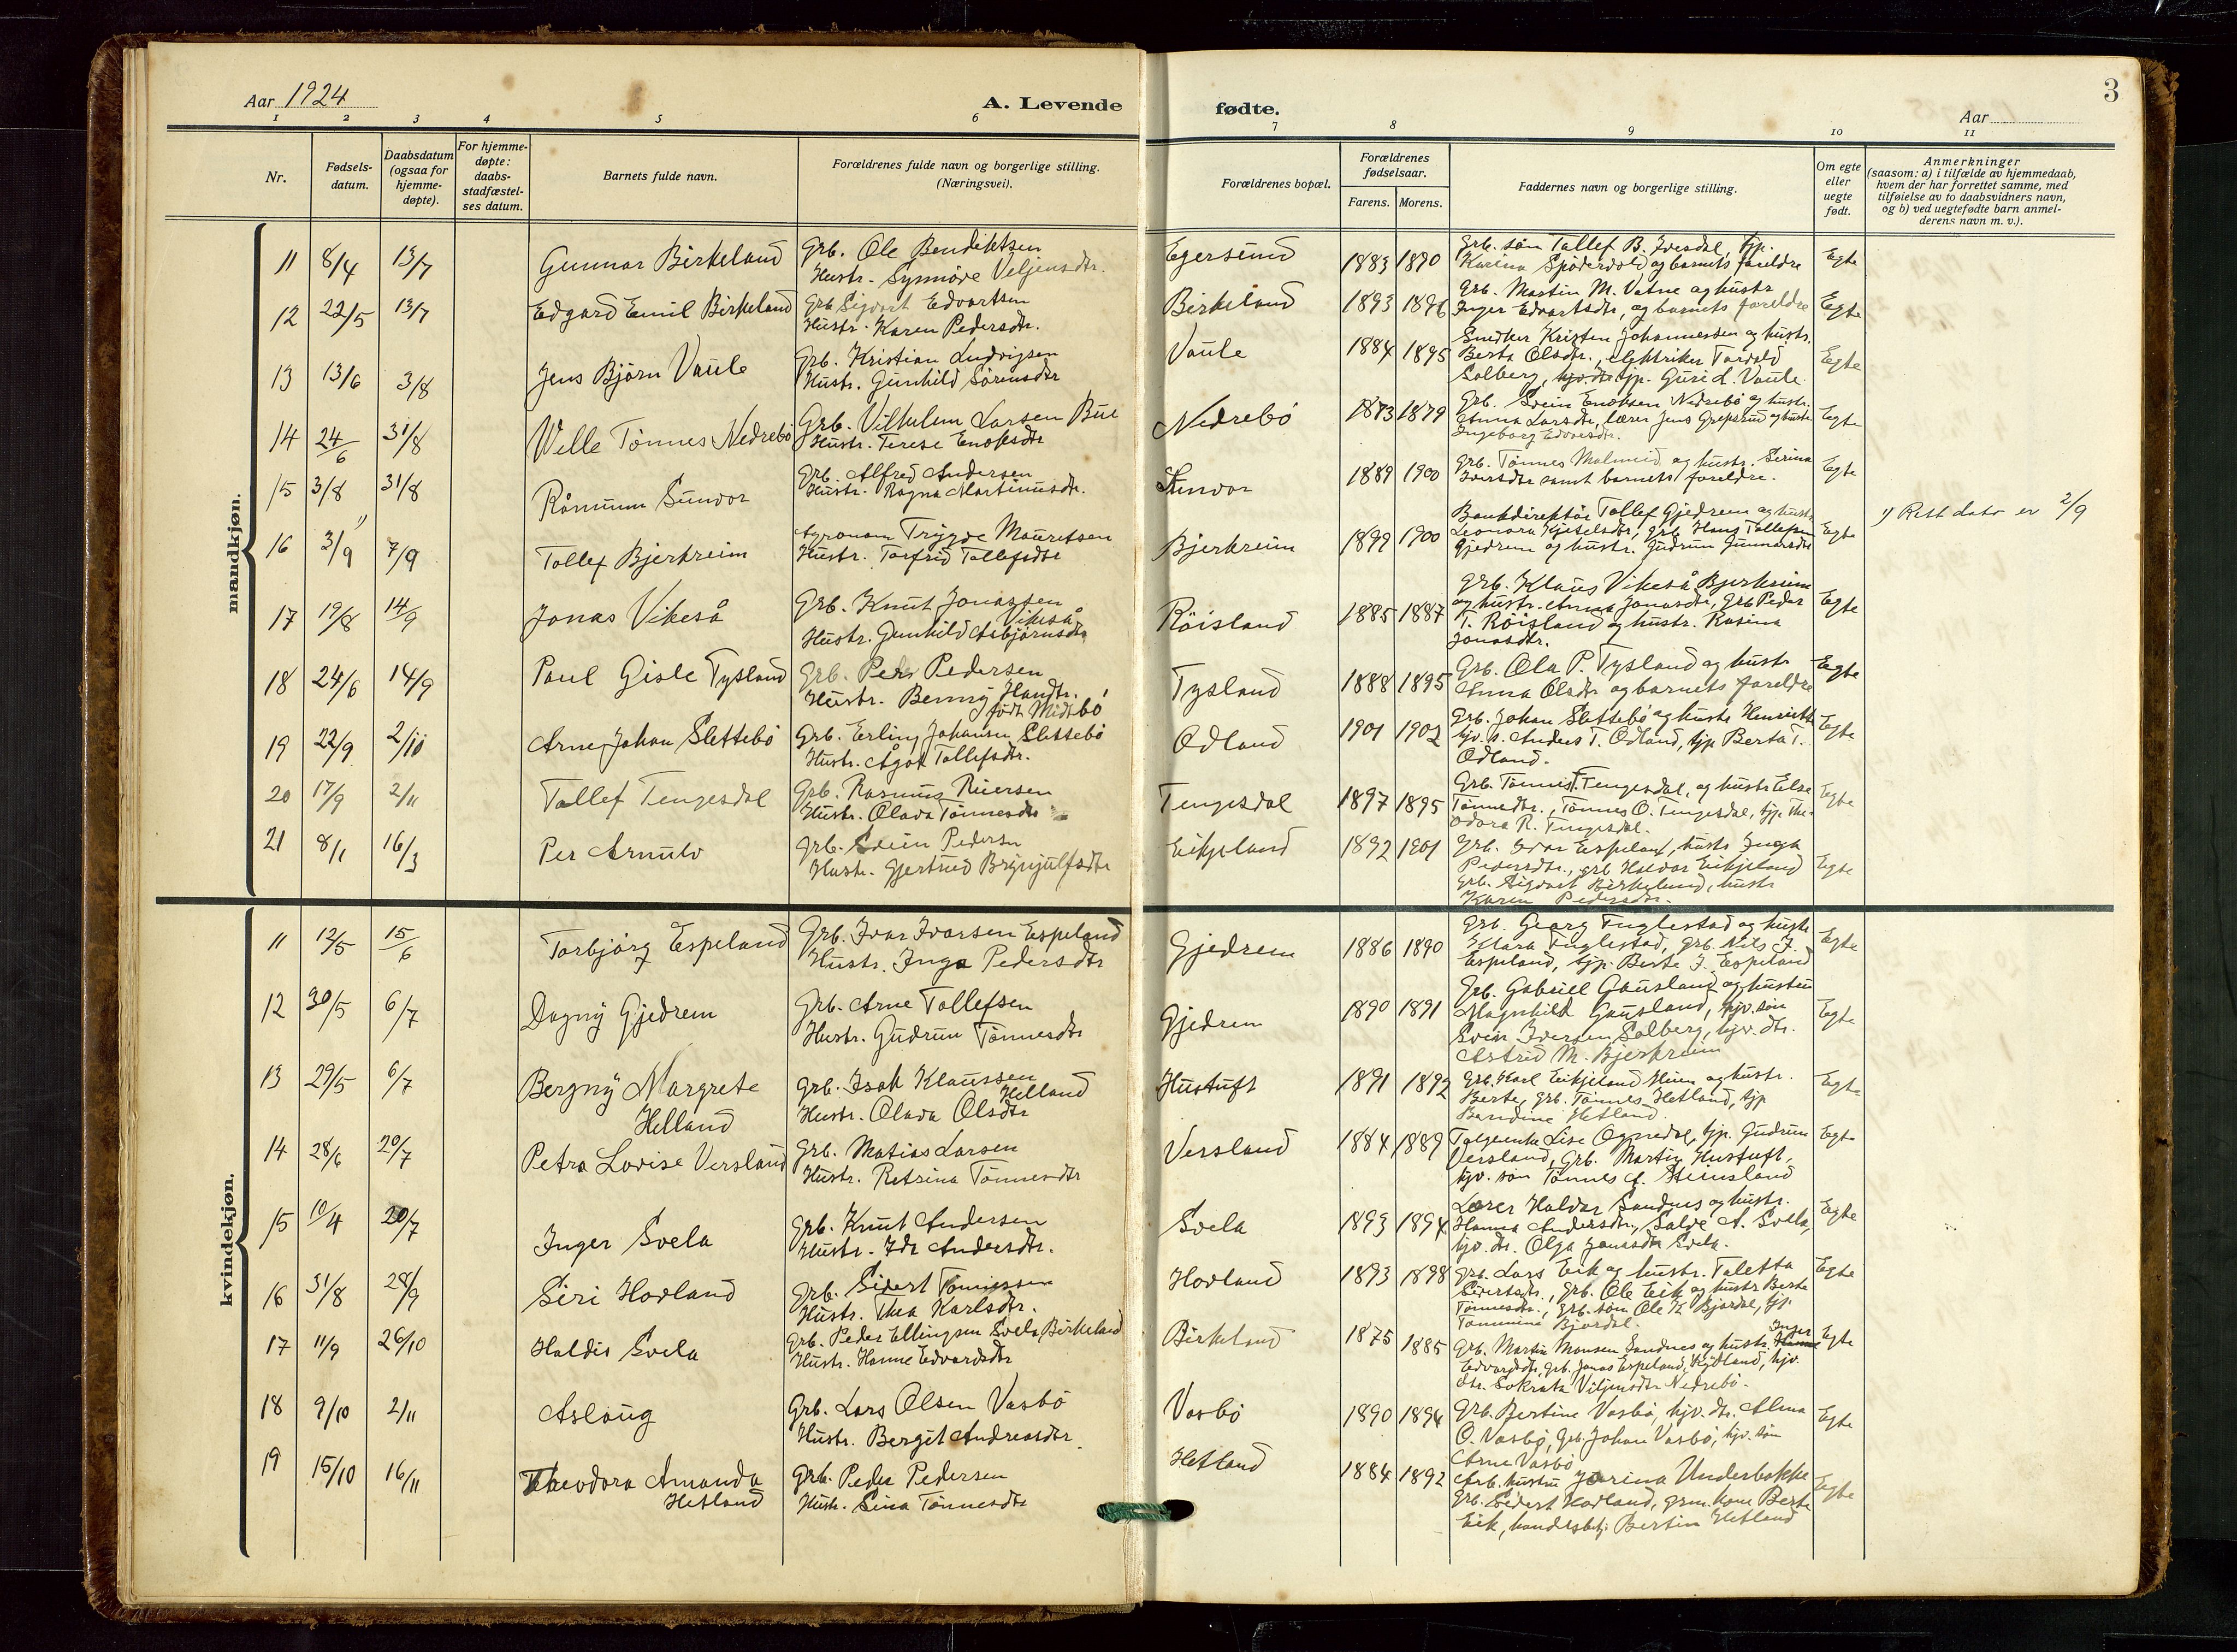 Aar 1924
A. Levende
fødte.
3
Aar
1 2 3 4 5 6 7 8 9 10 11
Nr.
Fødsels-
datum.
Daabsdatum
(ogsaa for
hjemme-
døpte).
For hjemme-
døpte:
daabs-
stadfæstel-
ses datum.
Barnets fulde navn.
Forældrenes fulde navn og borgerlige stilling.
(Næringsvei).
Forældrenes bopæl.
Forældrenes
fødselsaar.
Farens. Morens.
Faddernes navn og borgerlige stilling.
Om egte
eller
uegte
født.
Anmerkninger
(saasom: a) i tilfælde av hjemmedaab,
hvem der har forrettet samme, med
tilføielse av to daabsvidners navn,
og b) ved uegtefødte barn anmel-
derens navn m. v.).
mandkjøn.
11 8/4 13/7 Gunnar Birkeland
Grb. Ole Bendiktsen
Hustr. Synnöve Veljensdtr.
Egersund 1883 1890
Grb. søn Tollef B. Ivesdal, tjp.
Karina Spödervold og barnets foreldre
Egte
12 22/5 13/7 Edgard Emil Birkeland
Grb Sigvart Edvartsen
Hustr. Karen Pedersdtr.
Birkeland 1893 1896
Grb. Martin M. Vatne og hustr
Inger Edvartsdtr, og barnets foreldre
Egte
13 13/6 3/8 Jens Björn Vaule
Grb. Kristian Ludvigsen
Hustr. Gunhild Sörensdtr
Vaule 1884 1895
Smdker Kristen Johannessen og hustr.
Berta Olsdtr., elektriker Tordald
Solberg, tjp. Guri L. Vaule.
Egte
14 24/6 31/8 Wille Tönnes Nedrebö
Grb. Vilhelm Larsen Bue
Hustr. Terese Enoksdtr
Nedrebö 1873 1879
Grb. Svein Enoksen Nedrebö og hustr.
Anna Larsdtr, lærer Jens Grepstad og hustr
Ingeborg Edvarsdtr.
Egte
15 3/8 31/8 Råmunn Sunvor
Grb. Alfred Andersen
Hustr. Ragna Martinusdtr.
Sunvor 1889 1900
Grb. Tönnes Malmeid og hustr. Serina
Iversdtr samt barnets foreldre.
Egte
16 3/9 1) 7/9 Tollef Bjerkreim
Agronom Trygve Mauritsen
Hustr. Torfrid Tollefsdtr
Bjerkreim 1899 1900
Bankdirektör Tollef Gjedrem og hustr
Leonora Kjetelsdtr, Grb. Hans Tollefsen
Gjedrem og hustr. Gudrun Gunnarsdtr
Egte
1) Rett dato er 2/9
17 19/8 14/9 Jonas Vikeså
Grb. Knut Jonassen
Vikeså
Hustr. Gunhild Asbjörnsdtr
Röisland 1885 1887
Grb. Klaus Vikeså Bjerkreim
og hustr. Anna Jonasdtr, Grb Peder
T. Röisland og hustr. Rasina
Jonasdtr.
Egte
18 24/6 14/9 Paul Gisle Tysland
Grb. Peder Pedersen
Hustr. Benny Hansdtr.
född Midtbö
Tysland 1888 1895
Grb. Ola P. Tysland og hustr
Anna Olsdtr og barnets foreldre
Egte
19 22/9 2/10 Arne Johan Slettebö
Grb. Erling Johansen Slettebö
Hustr. Ågot Tollefsdtr.
Odland 1901 1902
Grb. Johan Slettebö og hustr Henriette
hjv. s. Anders T. Odland, tjp Berta T.
Odland.
Egte
20 17/9 2/11 Tollef Tengesdal
Grb. Rasmus Ruersen
Hustr. Olava Tönnesdtr
Tengesdal 1897 1895
Grb. Tönnes T. Tengesdal, og hustr Else
Tönnesdtr., Tönnes O. Tengesdal, tjp. The-
odora R. Tengesdal.
Egte
21 8/1 16/3 Per Arnulv
Grb. Svein Pedersn
Hustr. Gjertrud Brynjulfsdtr
Eikjeland 1892 1901
Grb. Ivar Espeland, hustr Inga
Pedersdtr., grb Halvor Eikjeland
Grb. Sigvart Birkeland, hustr
Karen Pedersdtr.
Egte
kvindekjøn.
11 12/5 15/6 Torbjörg Espeland
Grb. Ivar Ivarsen Espeland
Hustr. Inga Pedersdtr
Gjedrem 1886 1890
Grb. Georg Fuglestad og hustr
Klara Fuglestad, Grb. Nils J.
Espeland, tjp. Berte J. Espeland
Egte
12 30/5 6/7 Dagny Gjedrem
Grb. Arne Tollefsen
Hustr. Gudrun Tönnesdtr
Gjedrem 1890 1891
Grb. Gabriel Gausland og hustru
Magnhild Gausland, hjv. søn
Svein Iversen Solberg, hjv. dtr.
Astrid M. Bjerkreim
Egte
13 29/5 6/7 Bergny Margrete
Helland
Grb. Isak Klaussen
Helland
Hustr. Olava Olsdtr
Hustuft 1891 1892
Grb. Karl Eikjeland Huen og hustr.
Berte, Grb. Tönnes Hetland, tjp
Bandine Hetland.
Egte
14 28/6 20/7 Petra Lovise Versland
Grb. Matias Larsen
Hustr. Petrina Tönnesdtr
Versland 1884 1889
Lise Ognedal, tjp. Gudrun
Versland, Grb. Martin Hustuft,
hjv. søn Tönnes A. Steinsland
Egte
15 10/4 20/7 Inger Svela
Grb. Knut Andersen
Hustr. Ida Andersdtr.
Svela 1893 1894
Lærer Haldor Sandnes og hustr.
Hanna Andersdtr., Salve A. Svela,
hjv. dtr. Olga Jonasdtr Svela.
Egte
16 31/8 28/9 Siri Hovland
Grb. Sivert Tönnessen
Hustr. Thea Karlsdtr.
Hovland 1893 1898
Grb. Lars Eik og hustr. Taletta
Sivertsdtr., Grb. Ole Eik og hustr Berte
Tönnesdtr., Grb. søn Ole K. Bjordal, tjp.
Tommine Bjordal.
Egte
17 11/9 26/10 Haldis Svela
Grb. Peder Ellingsen Svela, Birkeland
Hustr. Hanne Edvardsdtr
Birkeland 1875 1885
Grb. Martin Monsen Sandnes og hustr. Inger
Edvardsdtr, Grb. Jonas Espeland, Kydland, hjv.
dtr. Sokrata Viljensdtr Nedrebö.
Egte
18 9/10 2/11 Aslaug
Grb. Lars Olsen Vasbö
Hustr. Bergit Andreasdtr.
Vasbö 1890 1894
Grb. Bertine Vasbö, hjv. dtr. Alma
O. Vasbö, Grb. Johan Vasbö, hjv. søn
Arne Vasbö
Egte
19 15/10 16/11 Theodora Amanda
Hetland
Grb. Peder Pedersen
Hustr. Sina Tönnesdtr
Hetland 1884 1892
Arb. hustru Jorina Underbakke
Grb. Sivert Hovland, grm. kone Berte
Eik, handelsbetj. Bertin Hetland
Egte